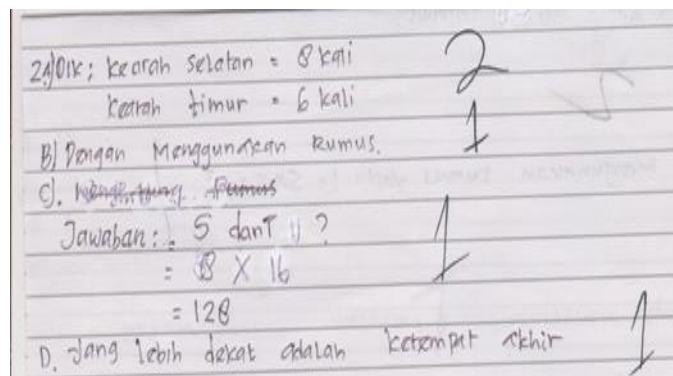 2A) Dik; kearah selatan = 8 kali
2
kearah timur = 6 kali
B) Dengan Menggunakan Rumus.
1
C). Rumus
Jawaban: . S dan T ?
1
= 8 X 16
= 128
D. Jang lebih dekat adalah ketempat akhir
1